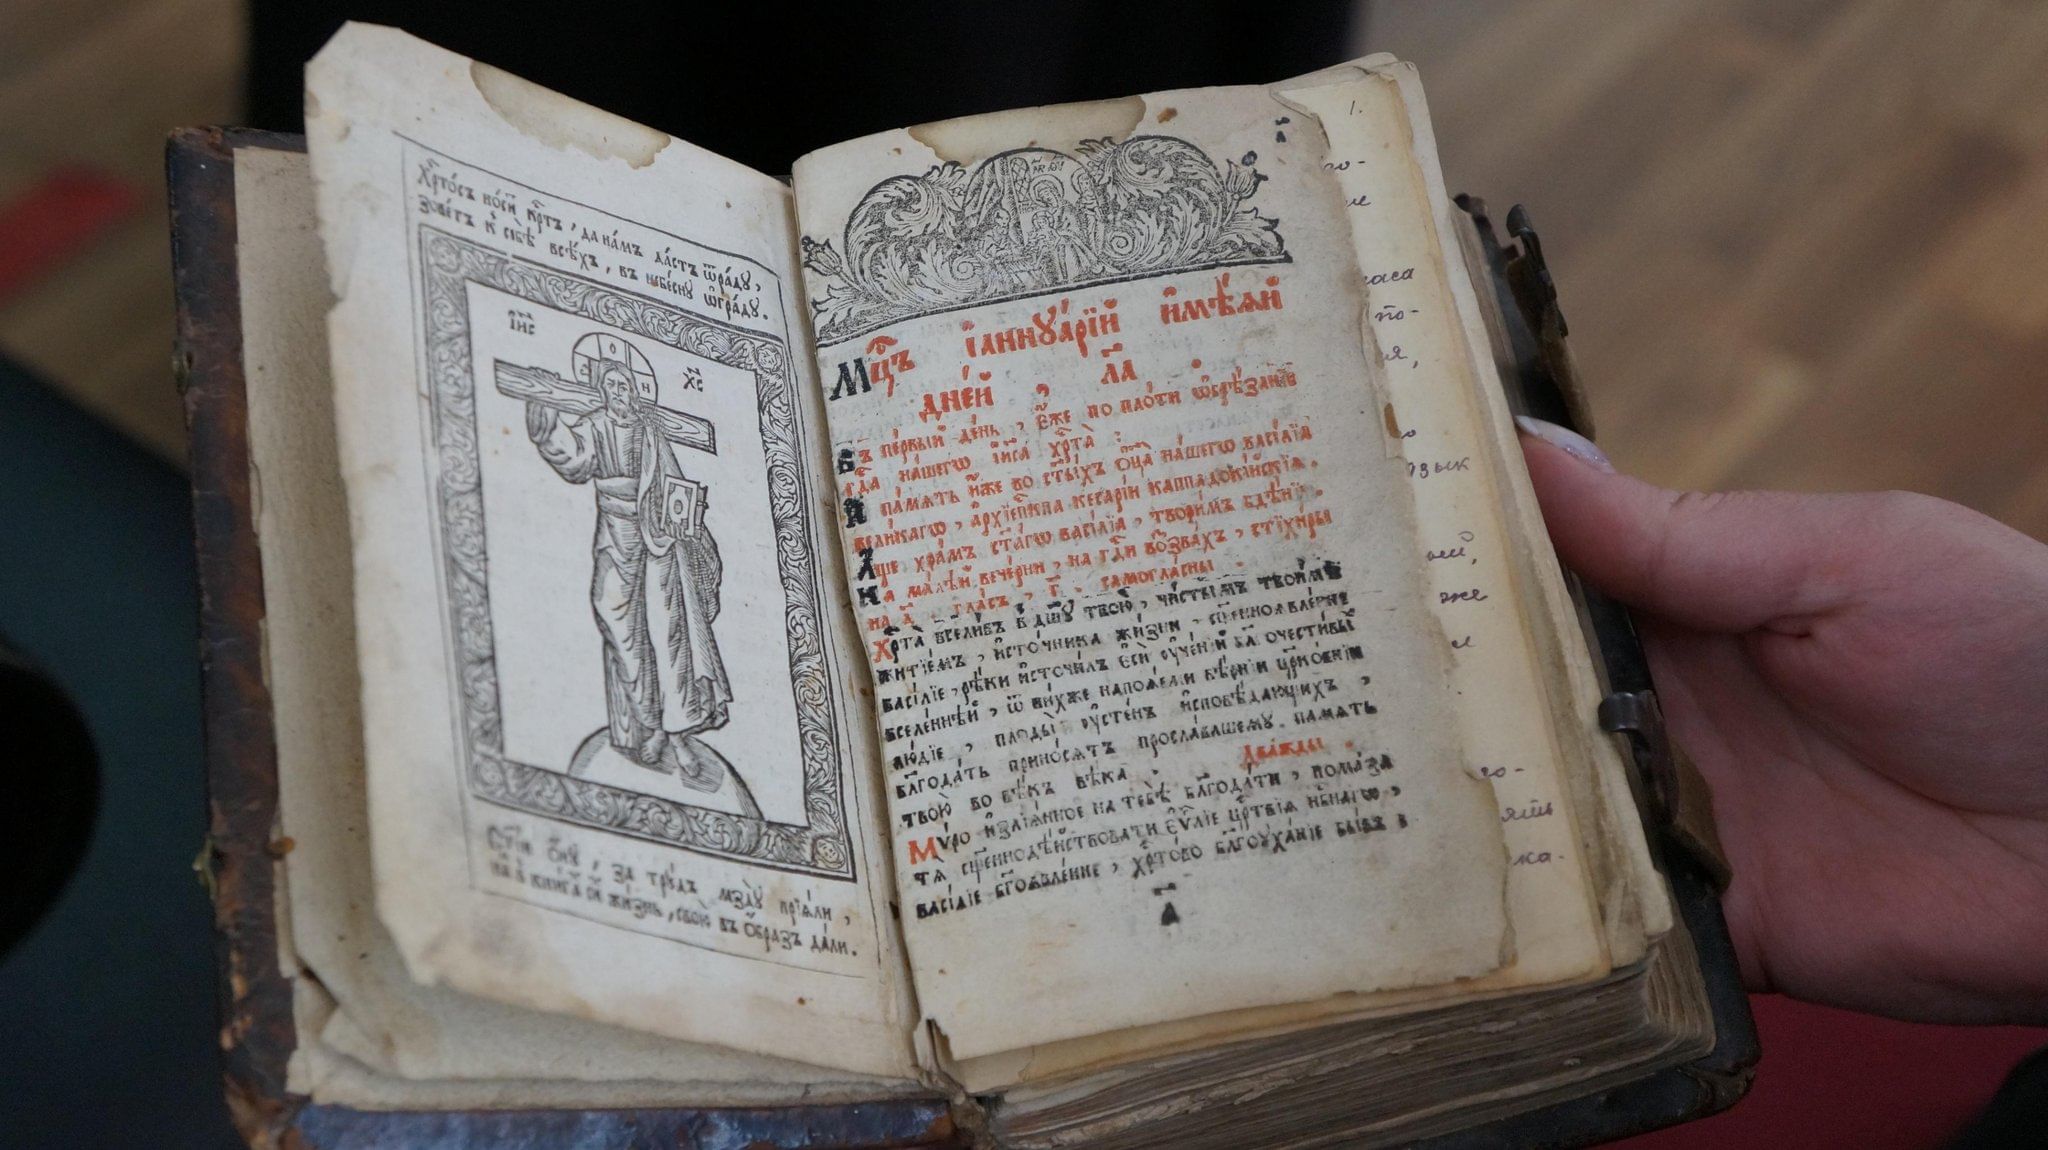 Хрⷭ҇то́съ но́ситъ крⷭ҇тъ, да на́мъ да́стъ ѿра́дꙋ,
Зове́тъ к̾ себѣ̀ всѣ́хъ, въ нб҃е́снꙋ ѡ҆гра́дꙋ.
І҆И҃С
Х҃С
О
Н
за трꙋ́дъ мздꙋ̀ прїѧ́ли,
жи́знь, свою̀ въ ѡ҆́бразъ да́ли.
Мцⷭ҇ъ і҆аннꙋа́рїй и҆мѣ́ѧй
дне́й, л҃а.
Въ пе́рвый де́нь, є҆́же по пло́ти ѡ҆брѣ́занїе
гдⷭ҇а на́шегѡ і҆и҃са хрⷭ҇та̀:
И҆ па́мѧть и҆́же во ст҃ы́хъ ѻ҆ц҃а̀ на́шегѡ васі́лїа
вели́кагѡ, а҆рхїепⷭ҇кпа кесарі́и каппадокі́йскїѧ.
А҆́ще хра́мъ ст҃а́гѡ васі́лїа, твори́мъ бдѣ́нїе.
На ма́лѣй вече́рни, на гдⷭ҇и воззва́хъ, стїхи́ры
на д҃. гла́съ, г҃. самогла́сны.
Хрⷭ҇та̀ всели́въ в̾ дш҃ꙋ твою̀, чи́стымъ твои́мъ
житїе́мъ, и҆сто́чника жи́зни, сщ҃енноѧвле́нне
васі́лїе, рѣ́ки и҆сточи́лъ є҆сѝ ᲂу҆че́нїй бл҃гочести́вы
вселе́ннѣй, ѿ ни́хже напоѧ́еми вѣ́рнїи цр҃ко́внїи
лю́дїе, плоды̀ ᲂу҆сте́нъ и҆сповѣ́дающихъ,
бл҃года́ть прино́сѧтъ просла́вльшемꙋ па́мѧть
твою̀ во вѣ́къ вѣ́ка. Два́жды.
Мѵ́ро и҆злїѧ́нное на тебѣ̀ бл҃года́ти, пома́за
тѧ сщ҃еннодѣ́йствовати є҆ѵⷢ҇лїе црⷭ҇твїѧ нбⷭ҇нагѡ,
васі́лїе бг҃оѧвле́ние, хрⷭ҇то́во бл҃гоꙋха́нїе бы́въ
а҃
1.
го-
по-
же
ка-